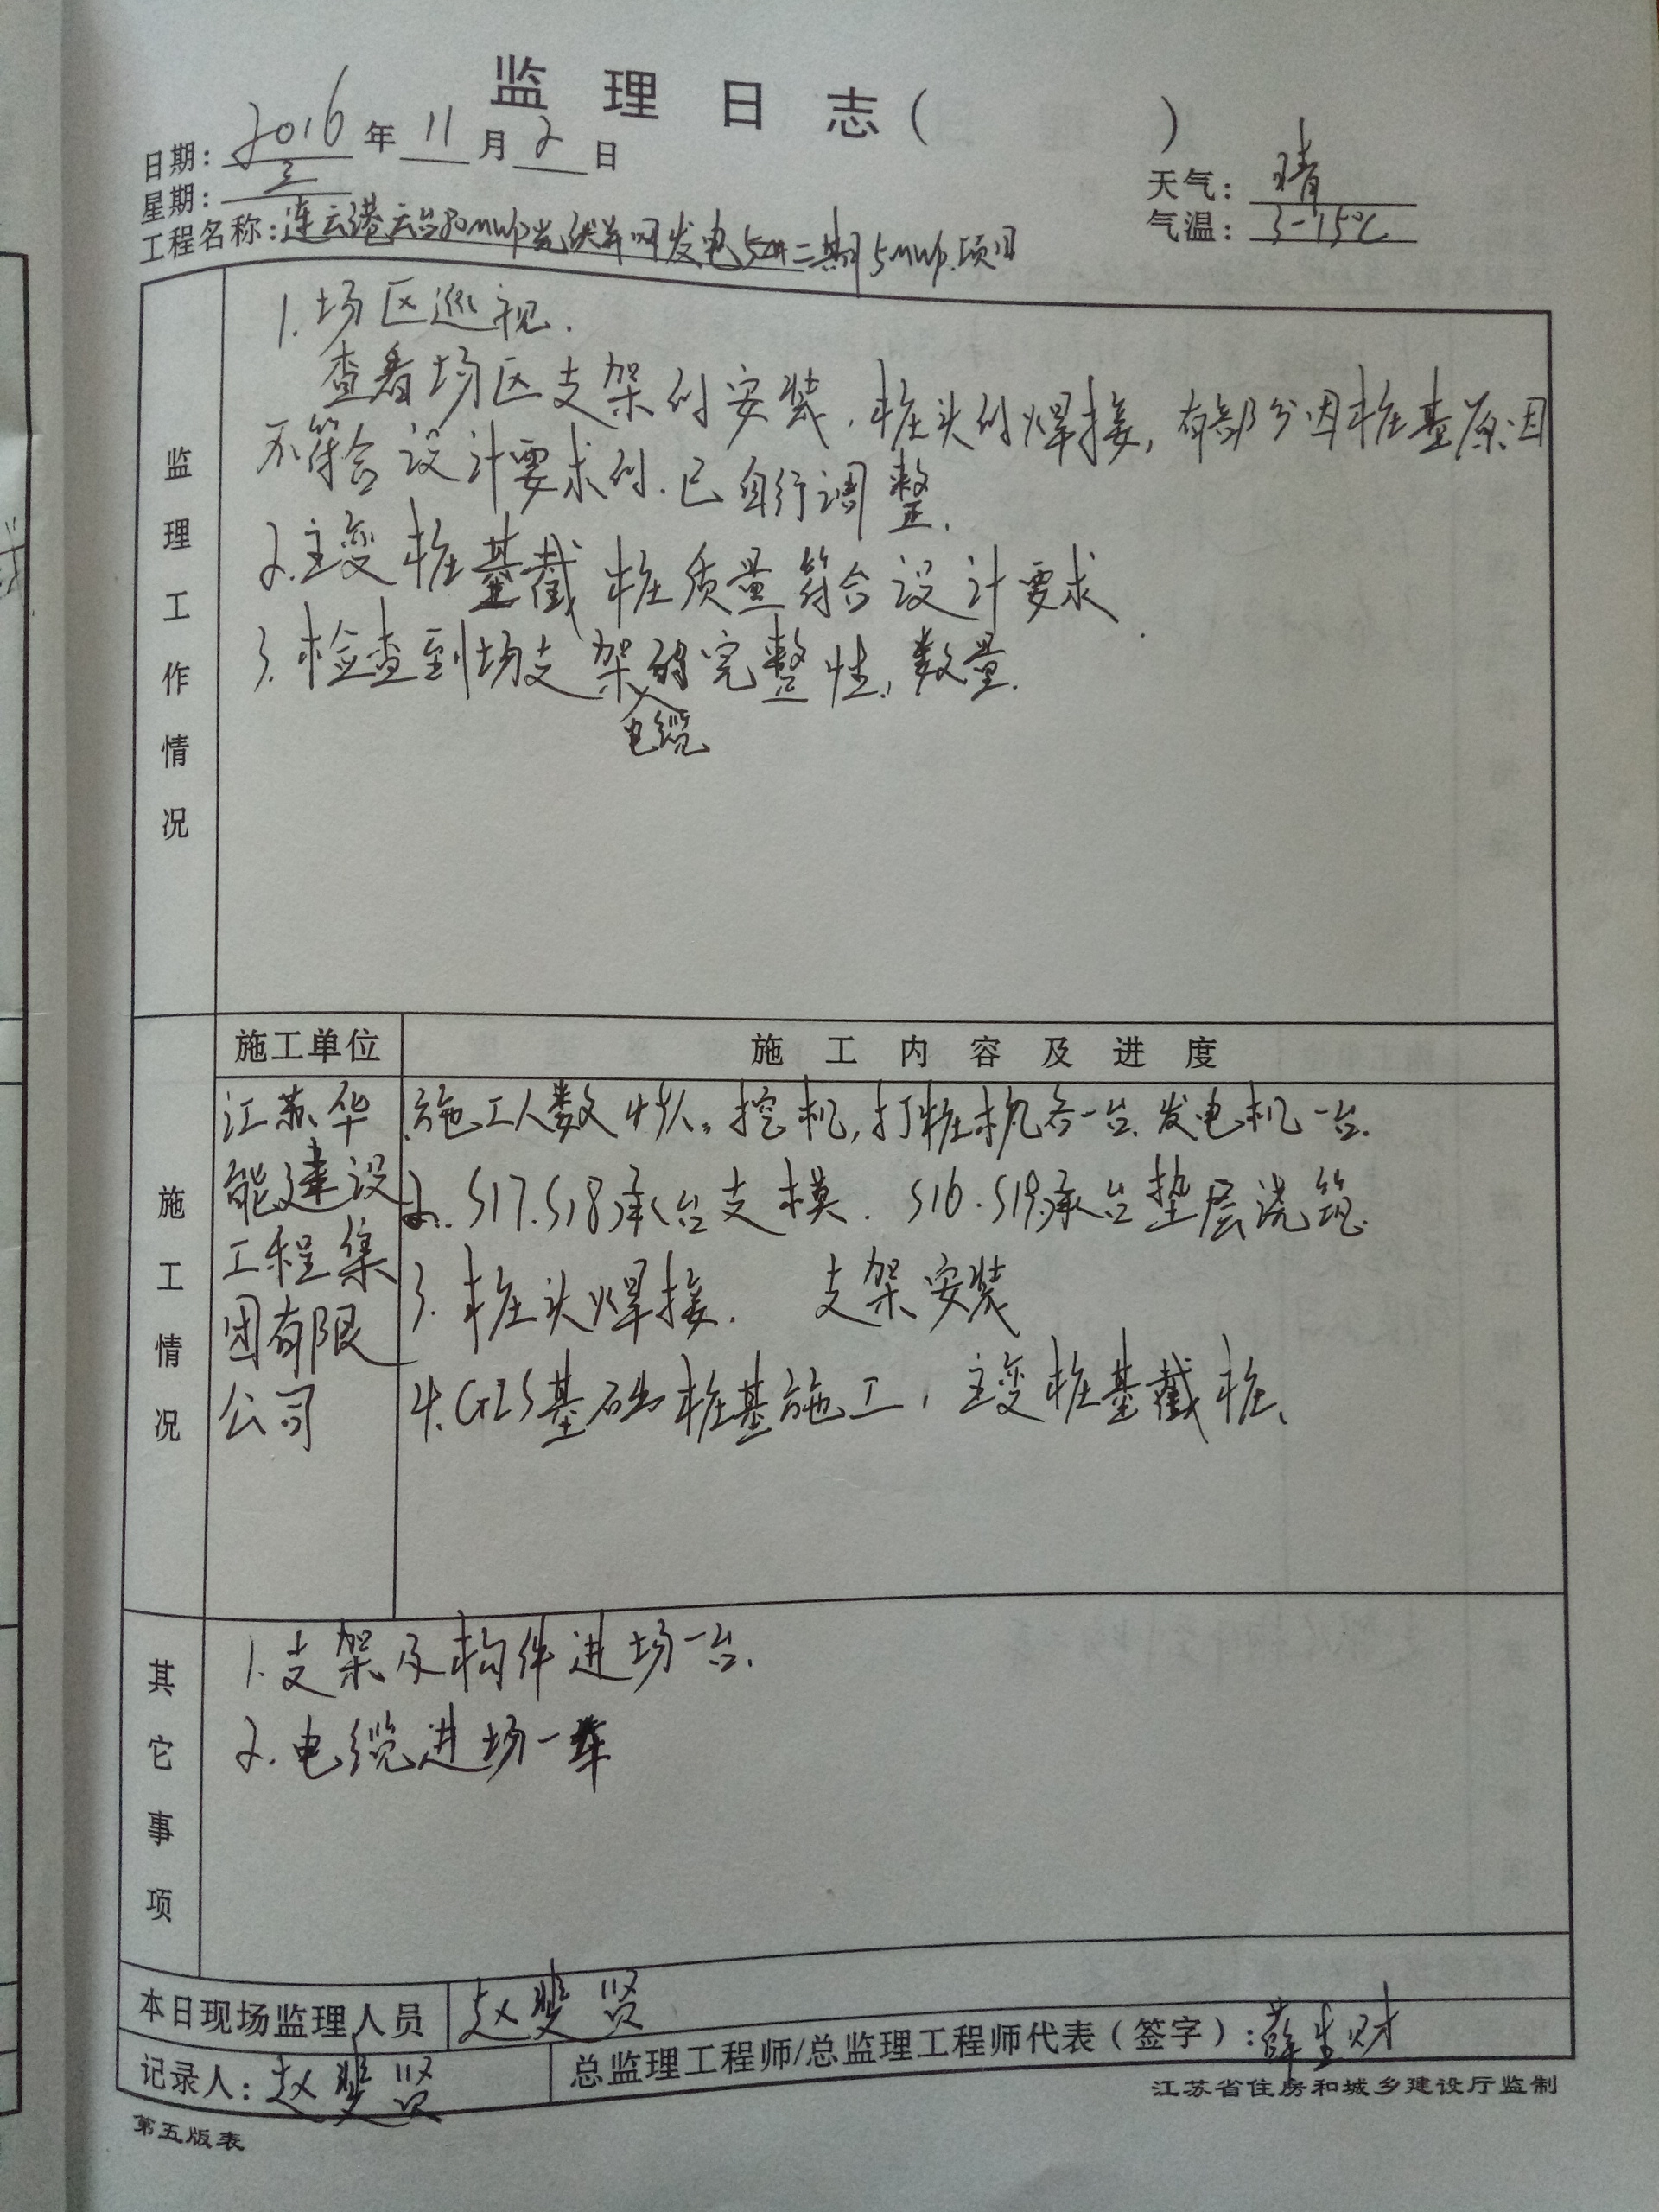 监 理 日 志（ ）
日期：2016年11月2日
星期：三
天气：晴
气温：3-15℃
工程名称：连云港云台80MWp光伏并网发电二期5MWp项目
监理工作情况
1.场区巡视.
查看场区支架的安装，桩头的焊接，有部分因桩基原因
不符合设计要求的.已自行调整.
2.主变桩基截桩质量符合设计要求.
3.检查到场支架的完整性,数量.
电缆
施工单位
施 工 内 容 及 进 度
施工情况
江苏华
能建设
工程集
团有限
公司
1.施工人数 人。挖机,打桩机各一台.发电机一台.
2. S17.S18承台支模. S16.S19承台垫层浇筑.
3. 桩头焊接. 支架安装
4.GIS基础桩基施工，主变桩基截桩、
其它事项
1.支架及构件进场一台.
2.电缆进场一车
本日现场监理人员 赵斐贤
记录人：赵斐贤
总监理工程师/总监理工程师代表（签字）：薛生财
江苏省住房和城乡建设厅监制
第五版表